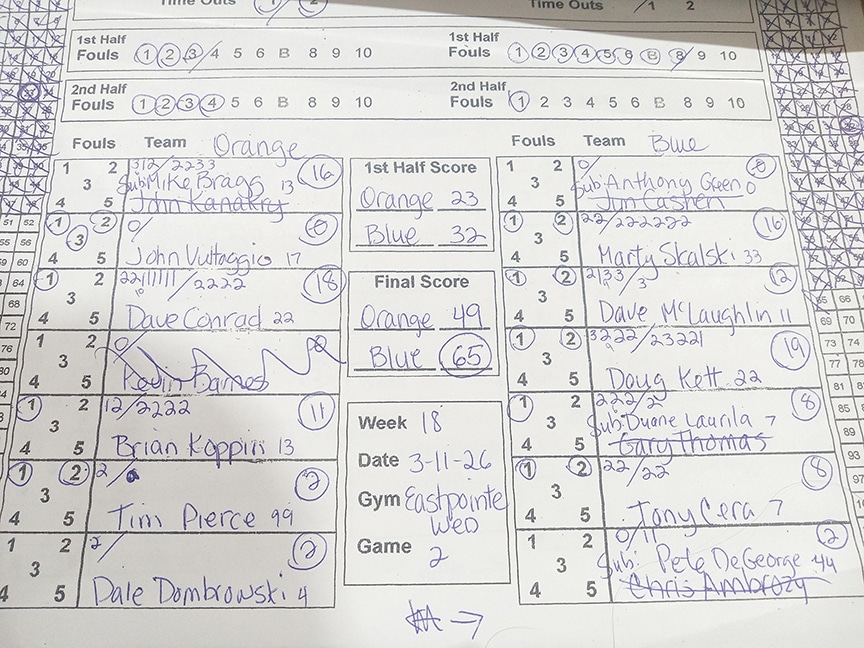 Time Outs 1 2
Time Outs 1 2
1st Half
Fouls 1 2 3 4 5 6 B 8 9 10
1st Half
Fouls 1 2 3 4 5 6 B 8 9 10
2nd Half
Fouls 1 2 3 4 5 6 B 8 9 10
2nd Half
Fouls 1 2 3 4 5 6 B 8 9 10
Fouls Team Orange
1 2 3 4 5
312/2233 16
Sub: Mike Bragg 13
John Kanakry
1 2 3 4 5
0/ 0
John Vuttaggio 17
1 2 3 4 5
22111111/2222 18
Dave Conrad 22
1 2 3 4 5
0/
Kevin Barnes
1 2 3 4 5
12/2222 11
Brian Koppin 13
1 2 3 4 5
2/ 2
Tim Pierce 99
1 2 3 4 5
2/ 2
Dale Dombrowski 4
1st Half Score
Orange 23
Blue 32
Final Score
Orange 49
Blue 65
Week 18
Date 3-11-26
Gym Eastpointe
Wed
Game 2
Fouls Team Blue
1 2 3 4 5
0/ 0
Sub: Anthony Green 0
Jim Cashen
1 2 3 4 5
22/222222 16
Marty Skalski 33
1 2 3 4 5
2133/3 12
Dave McLaughlin 11
1 2 3 4 5
3222/23221 19
Doug Kett 22
1 2 3 4 5
222/2 8
Sub: Duane Laurila 7
Gary Thomas
1 2 3 4 5
22/22 8
Tony Cera 7
1 2 3 4 5
0/11 2
Sub: Pete DeGeorge 44
Chris Ambrozy
51 52
55 56
59 60
64
68
72
76
80
65 66
69 70
73 74
77 78
81
85
89
93
97